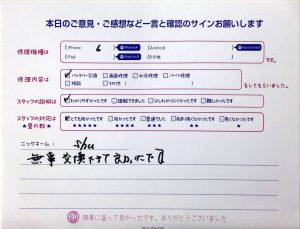 本日のご意見・ご感想など一言と確認のサインお願いします
修理機種は
iPhone 6
Android
iPad
その他
です。
修理内容は
バッテリー交換 画面修理 水没修理 パーツ修理
相談 その他
をしてもらいました。
スタッフの説明は
わかりやすかったです 理解できました 少しわかりにくかったです 難しかったです
スタッフの対応は
★星の数★
とても良かったです 良かったです 普通でした あまり良くなかったです 良くなかったです
★★★★★ ★★★★ ★★★ ★★ ★
ニックネーム： shu
無事交換できて良かったです
無事に直って良かったです。ありがとうございました